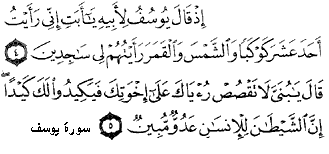 إِذْ قَالَ يُوسُفُ لِأَبِيهِ يَٰٓأَبَتِ إِنِّي رَأَيْتُ
أَحَدَ عَشَرَ كَوْكَبًا وَٱلشَّمْسَ وَٱلْقَمَرَ رَأَيْتُهُمْ لِي سَٰجِدِينَ ٤
قَالَ يَٰبُنَيَّ لَا تَقْصُصْ رُءْيَاكَ عَلَىٰٓ إِخْوَتِكَ فَيَكِيدُوا۟ لَكَ كَيْدًا ۖ
إِنَّ ٱلشَّيْطَٰنَ لِلْإِنسَٰنِ عَدُوٌّ مُّبِينٌ ٥ سورة يوسف